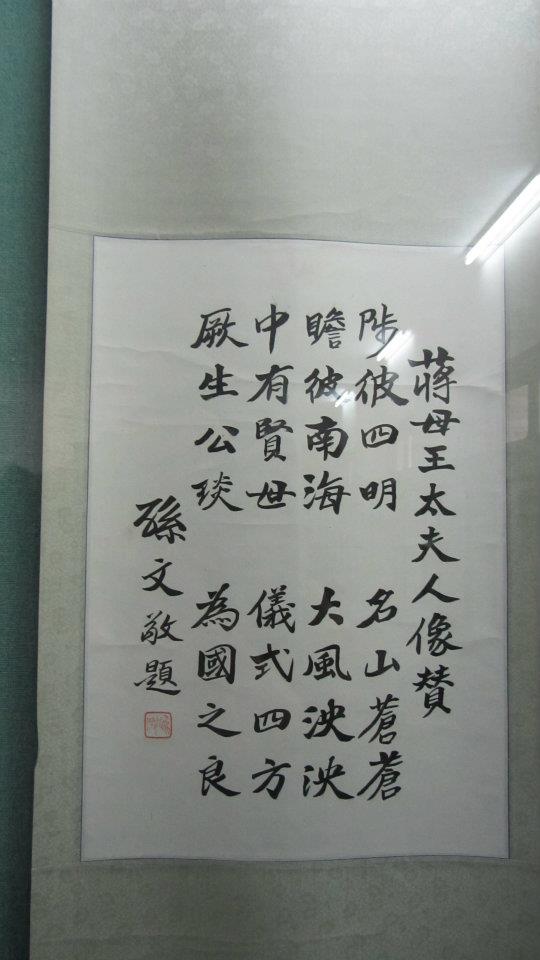 蔣母王太夫人像贊
陟彼四明 名山蒼蒼
瞻彼南海 大風泱泱
中有賢母 儀式四方
厥生公琰 為國之良
孫文敬題